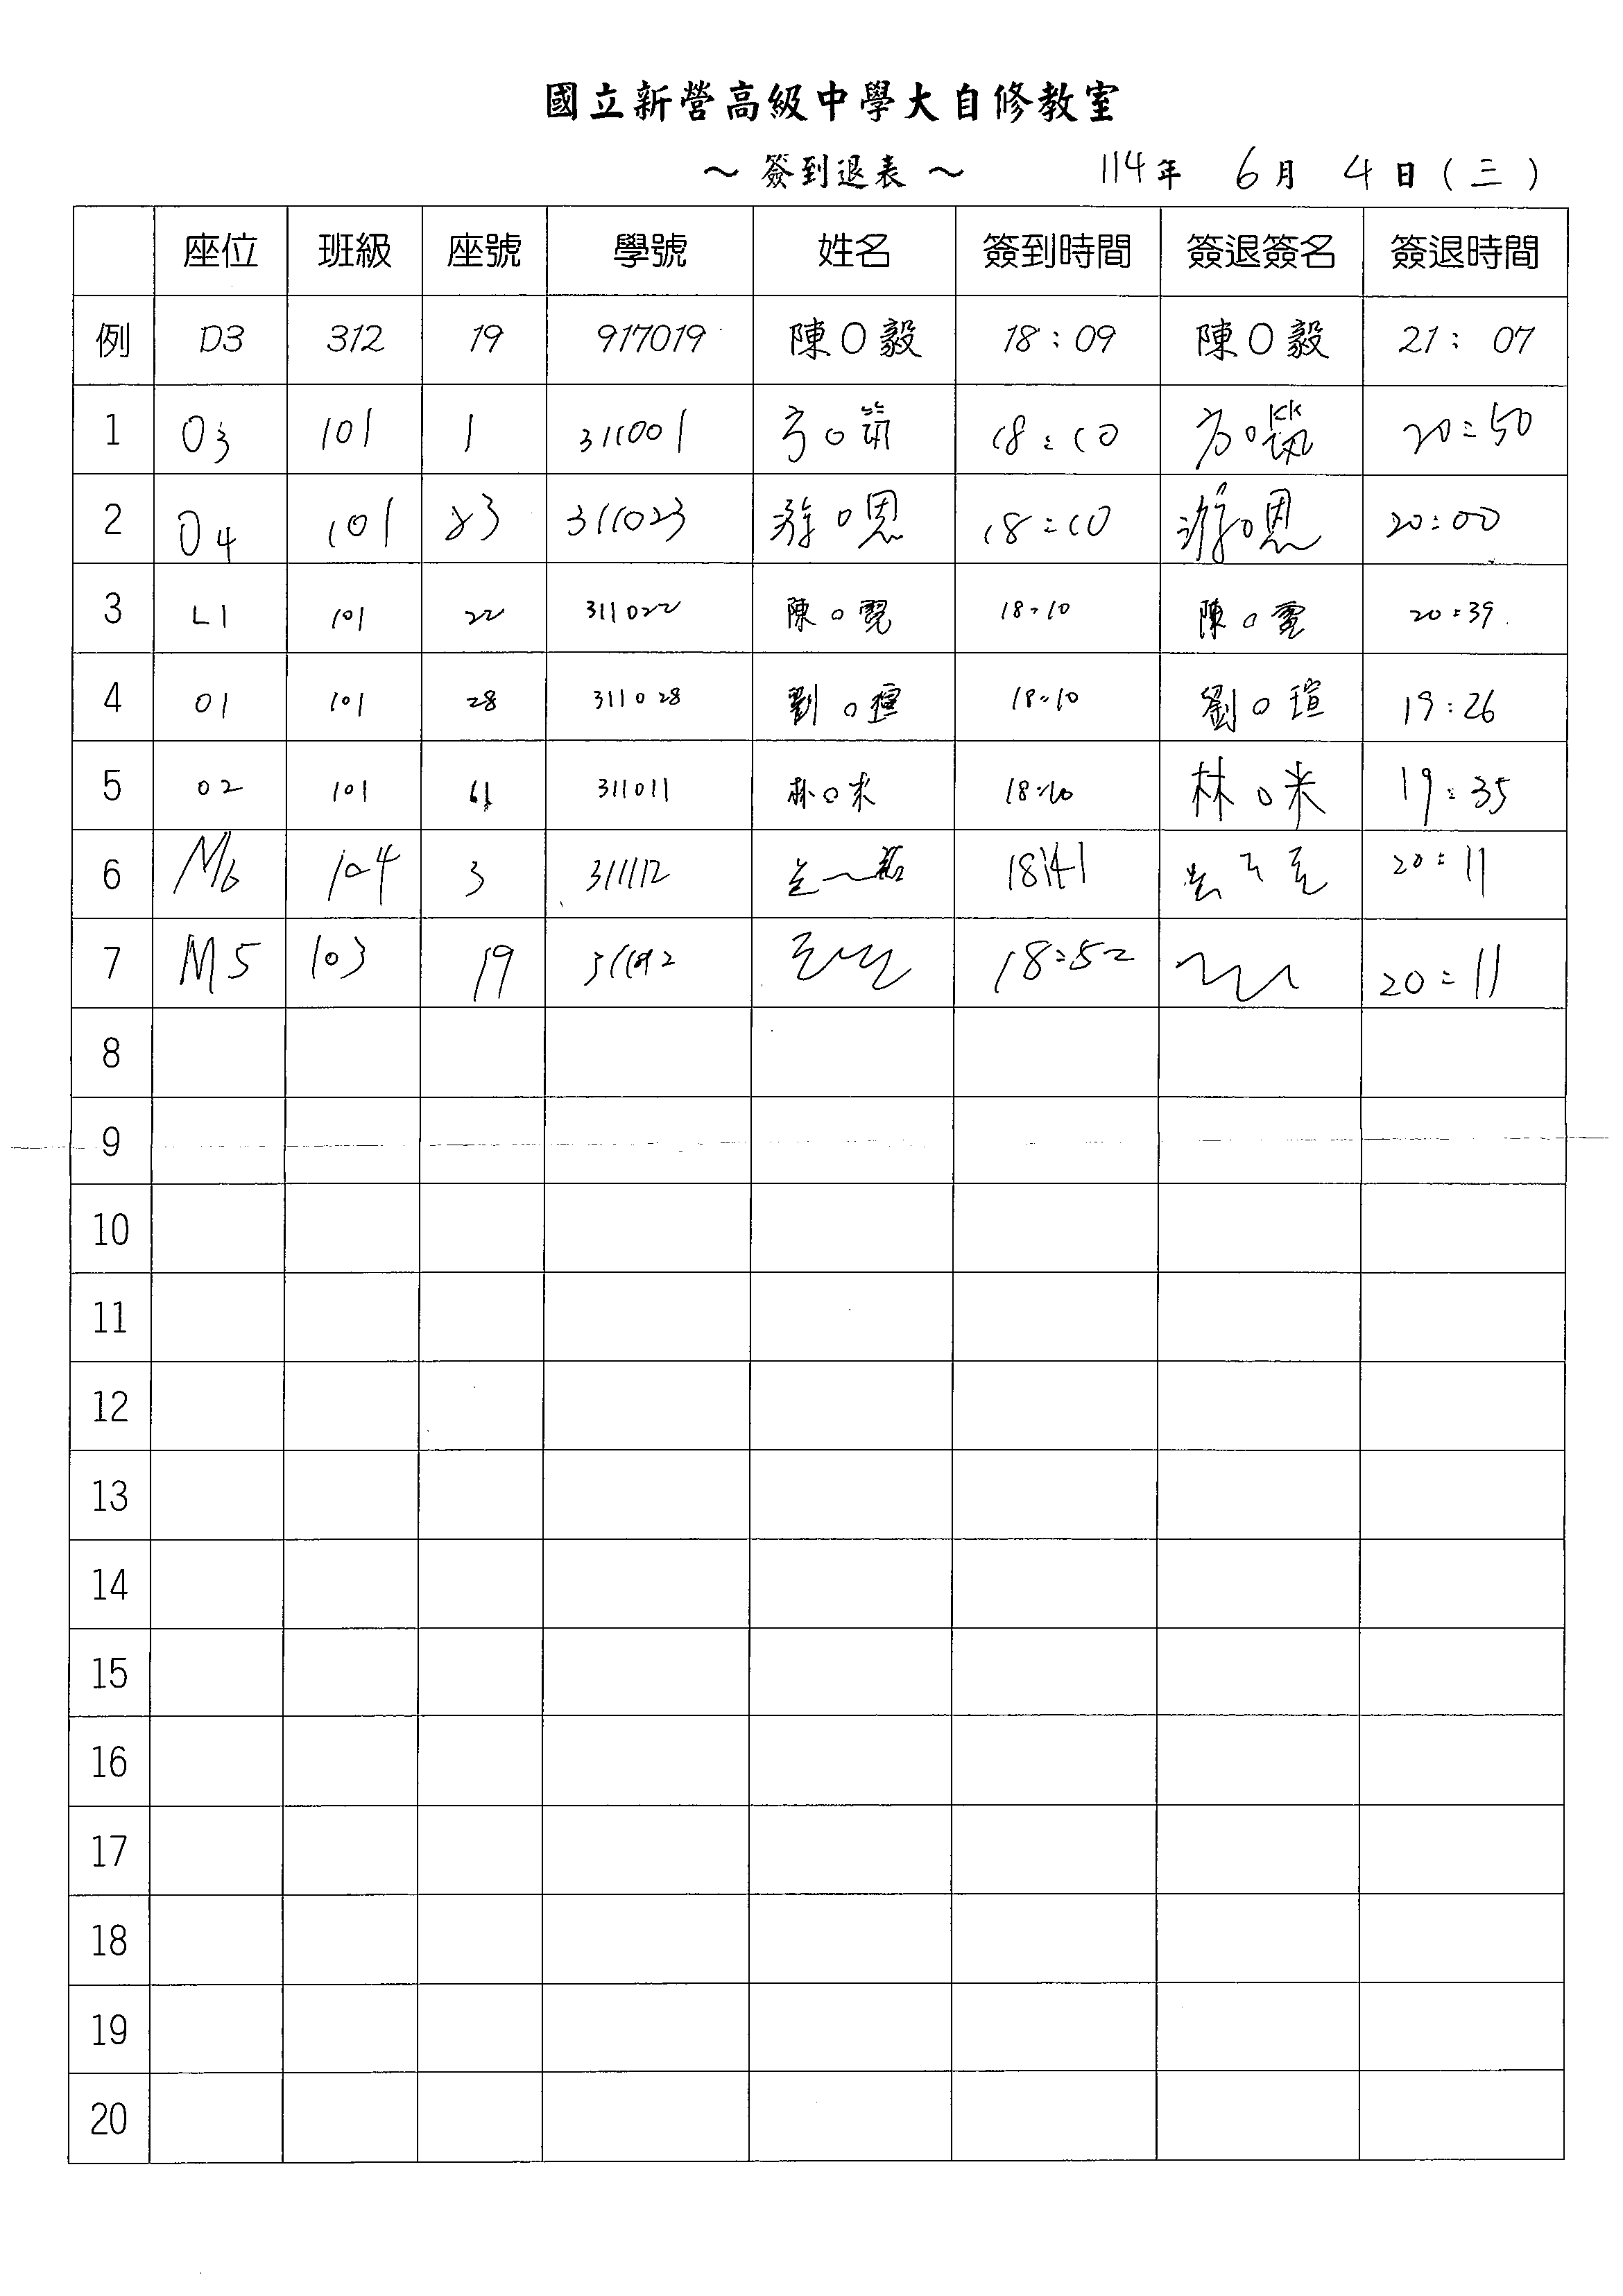 國立新營高級中學大自修教室
～ 簽到退表 ～ 114年 6月 4日(三)
座位 班級 座號 學號 姓名 簽到時間 簽退簽名 簽退時間
例 D3 312 19 917019 陳○毅 18:09 陳○毅 21:07
1 O3 101 1 311001 方○筑 18:10 方○筑 20:50
2 O4 101 23 311023 游○恩 18:10 游○恩 20:00
3 L1 101 22 311022 陳○霓 18:10 陳○霓 20:39
4 O1 101 28 311028 劉○瑄 18:10 劉○瑄 19:26
5 O2 101 11 311011 林○米 18:10 林○米 19:35
6 M6 104 3 311112 18:41 20:11
7 M5 103 19 18:52 20:11
8
9
10
11
12
13
14
15
16
17
18
19
20